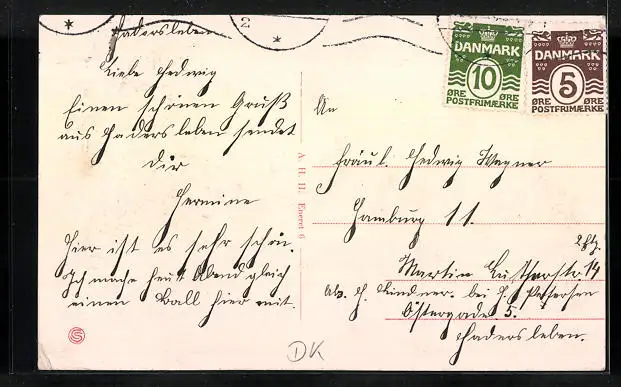 Hadersleben
Liebe Hedwig
Einen schönen Gruß
aus Hadersleben sendet
dir
Hermine
Hier ist es sehr schön.
Ich mache heut Abend gleich
einen Ball hier mit.
A. H. H. Eneret 6
2
DANMARK
10
ØRE ØRE
POSTFRIMÆRKE
DANMARK
5
ØRE ØRE
POSTFRIMÆRKE
An
Fräul. Hedwig Wegner
Hamburg 11.
Martin Lutherstr 14
Ab. H. Lindner. bei H. Petersen
Östergade 5.
Hadersleben.
DK